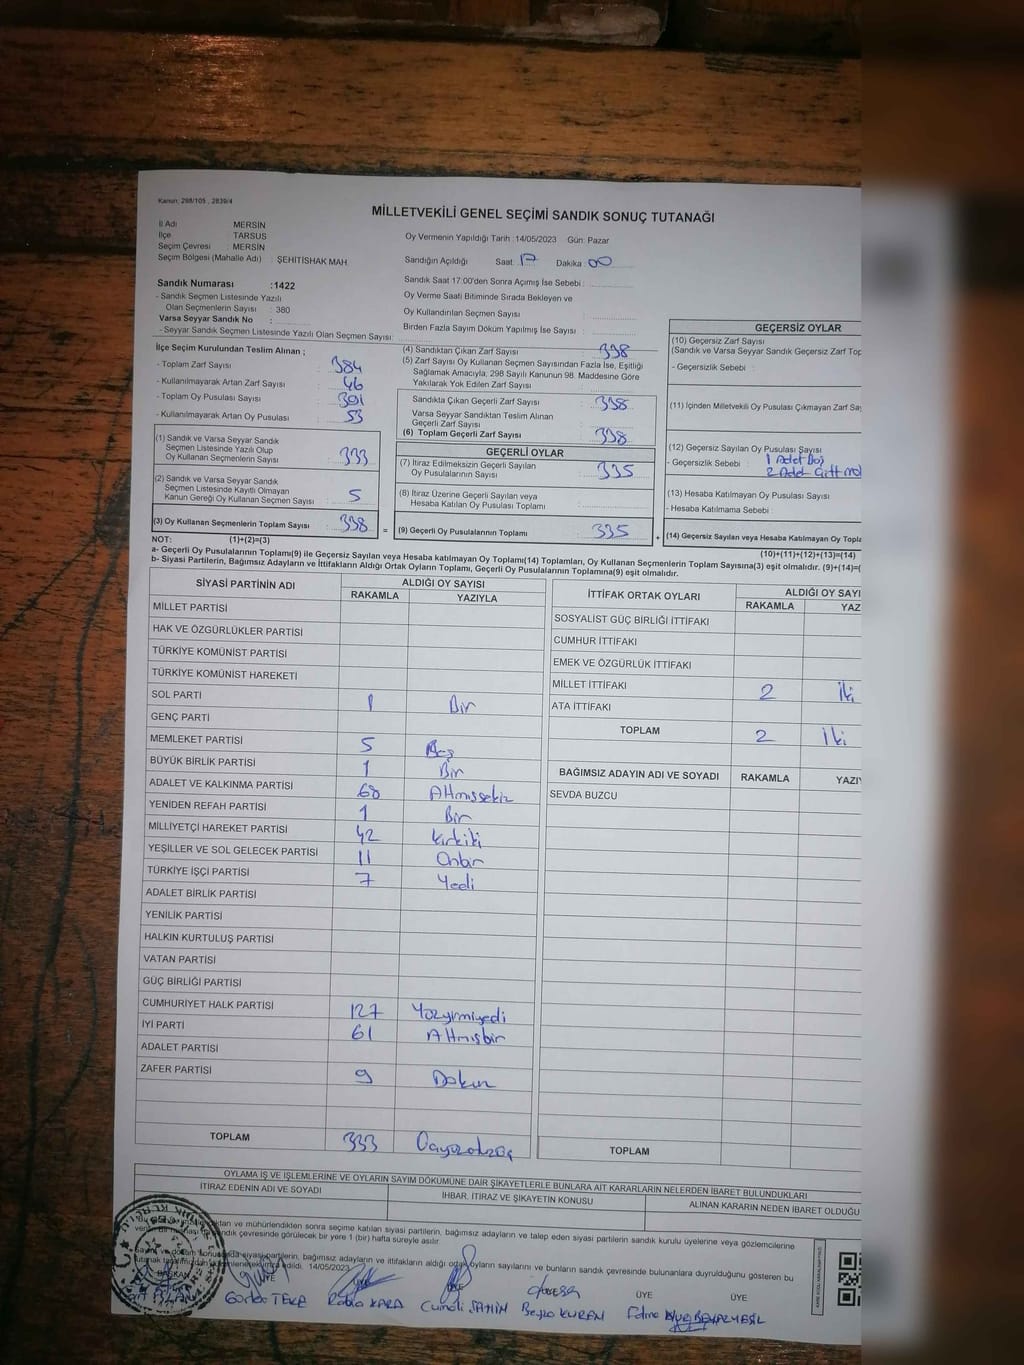 Kanun; 298/105 , 2839/4
MİLLETVEKİLİ GENEL SEÇİMİ SANDIK SONUÇ TUTANAĞI
İl Adı MERSİN
İlçe : TARSUS
Seçim Çevresi : MERSİN
Seçim Bölgesi (Mahalle Adı) : ŞEHİTİSHAK MAH.
Oy Vermenin Yapıldığı Tarih :14/05/2023 Gün: Pazar
Sandığın Açıldığı Saat: 17 Dakika: 00
Sandık Saat 17:00'den Sonra Açımış İse Sebebi :
Oy Verme Saati Bitiminde Sırada Bekleyen ve
Oy Kullandırılan Seçmen Sayısı :
Birden Fazla Sayım Döküm Yapılmış İse Sayısı :
Sandık Numarası :1422
- Sandık Seçmen Listesinde Yazılı
Olan Seçmenlerin Sayısı : 380
Varsa Seyyar Sandık No :
- Seyyar Sandık Seçmen Listesinde Yazılı Olan Seçmen Sayısı:
İlçe Seçim Kurulundan Teslim Alınan ;
- Toplam Zarf Sayısı : 384
- Kullanılmayarak Artan Zarf Sayısı : 46
- Toplam Oy Pusulası Sayısı : 391
- Kullanılmayarak Artan Oy Pusulası : 53
(1) Sandık ve Varsa Seyyar Sandık
Seçmen Listesinde Yazılı Olup
Oy Kullanan Seçmenlerin Sayısı : 333
(2) Sandık ve Varsa Seyyar Sandık
Seçmen Listesinde Kayıtlı Olmayan
Kanun Gereği Oy Kullanan Seçmen Sayısı : 5
(3) Oy Kullanan Seçmenlerin Toplam Sayısı : 338
(4) Sandıktan Çıkan Zarf Sayısı : 338
(5) Zarf Sayısı Oy Kullanan Seçmen Sayısından Fazla İse, Eşitliği
Sağlamak Amacıyla, 298 Sayılı Kanunun 98. Maddesine Göre
Yakılarak Yok Edilen Zarf Sayısı :
Sandıkta Çıkan Geçerli Zarf Sayısı : 338
Varsa Seyyar Sandıktan Teslim Alınan
Geçerli Zarf Sayısı :
(6) Toplam Geçerli Zarf Sayısı : 338
GEÇERLİ OYLAR
(7) İtiraz Edilmeksizin Geçerli Sayılan
Oy Pusulalarının Sayısı : 335
(8) İtiraz Üzerine Geçerli Sayılan veya
Hesaba Katılan Oy Pusulası Toplamı :
= (9) Geçerli Oy Pusulalarının Toplamı : 335 +
GEÇERSİZ OYLAR
(10) Geçersiz Zarf Sayısı
(Sandık ve Varsa Seyyar Sandık Geçersiz Zarf Top
- Geçersizlik Sebebi :
(11) İçinden Milletvekili Oy Pusulası Çıkmayan Zarf Sa
(12) Geçersiz Sayılan Oy Pusulası Sayısı
- Geçersizlik Sebebi : 1 Adet Boş
2 Adet Çift
(13) Hesaba Katılmayan Oy Pusulası Sayısı
- Hesaba Katılmama Sebebi :
(14) Geçersiz Sayılan veya Hesaba Katılmayan Oy Topla
NOT: (1)+(2)=(3)
(10)+(11)+(12)+(13)=(14)
a- Geçerli Oy Pusulalarının Toplamı(9) ile Geçersiz Sayılan veya Hesaba katılmayan Oy Toplamı(14) Toplamları, Oy Kullanan Seçmenlerin Toplam Sayısına(3) eşit olmalıdır. (9)+(14)=(
b- Siyasi Partilerin, Bağımsız Adayların ve İttifakların Aldığı Ortak Oyların Toplamı, Geçerli Oy Pusulalarının Toplamına(9) eşit olmalıdır.
SİYASİ PARTİNİN ADI ALDIĞI OY SAYISI
RAKAMLA YAZIYLA
MİLLET PARTİSİ
HAK VE ÖZGÜRLÜKLER PARTİSİ
TÜRKİYE KOMÜNİST PARTİSİ
TÜRKİYE KOMÜNİST HAREKETİ
SOL PARTİ 1 Bir
GENÇ PARTİ
MEMLEKET PARTİSİ 5 Beş
BÜYÜK BİRLİK PARTİSİ 1 Bir
ADALET VE KALKINMA PARTİSİ 68 Altmışsekiz
YENİDEN REFAH PARTİSİ 1 Bir
MİLLİYETÇİ HAREKET PARTİSİ 42 kırkiki
YEŞİLLER VE SOL GELECEK PARTİSİ 11 Onbir
TÜRKİYE İŞÇİ PARTİSİ 7 Yedi
ADALET BİRLİK PARTİSİ
YENİLİK PARTİSİ
HALKIN KURTULUŞ PARTİSİ
VATAN PARTİSİ
GÜÇ BİRLİĞİ PARTİSİ
CUMHURİYET HALK PARTİSİ 127 Yüzyirmiyedi
İYİ PARTİ 61 Altmışbir
ADALET PARTİSİ
ZAFER PARTİSİ 9 Dokuz
TOPLAM 333
İTTİFAK ORTAK OYLARI ALDIĞI OY SAYI
RAKAMLA YAZ
SOSYALİST GÜÇ BİRLİĞİ İTTİFAKI
CUMHUR İTTİFAKI
EMEK VE ÖZGÜRLÜK İTTİFAKI
MİLLET İTTİFAKI 2 İki
ATA İTTİFAKI
TOPLAM 2 İki
BAĞIMSIZ ADAYIN ADI VE SOYADI RAKAMLA YAZIY
SEVDA BUZCU
TOPLAM
OYLAMA İŞ VE İŞLEMLERİNE VE OYLARIN SAYIM DÖKÜMÜNE DAİR ŞİKAYETLERLE BUNLARA AİT KARARLARIN NELERDEN İBARET BULUNDUKLARI
İTİRAZ EDENİN ADI VE SOYADI İHBAR, İTİRAZ VE ŞİKAYETİN KONUSU ALINAN KARARIN NEDEN İBARET OLDUĞU
ve mühürlendikten sonra seçime katılan siyasi partilerin, bağımsız adayların ve talep eden siyasi partilerin sandık kurulu üyelerine veya gözlemcilerine
çevresinde görülecek bir yere 1 (bir) hafta süreyle asılır.
siyasi partilerin, bağımsız adayların ve ittifakların aldığı oyların sayılarını ve bunların sandık çevresinde bulunanlara duyrulduğunu gösteren bu
edildi. 14/05/2023
BAŞKAN ÜYE ÜYE ÜYE
TEKE KARA ŞAHİN KURAN Fatma